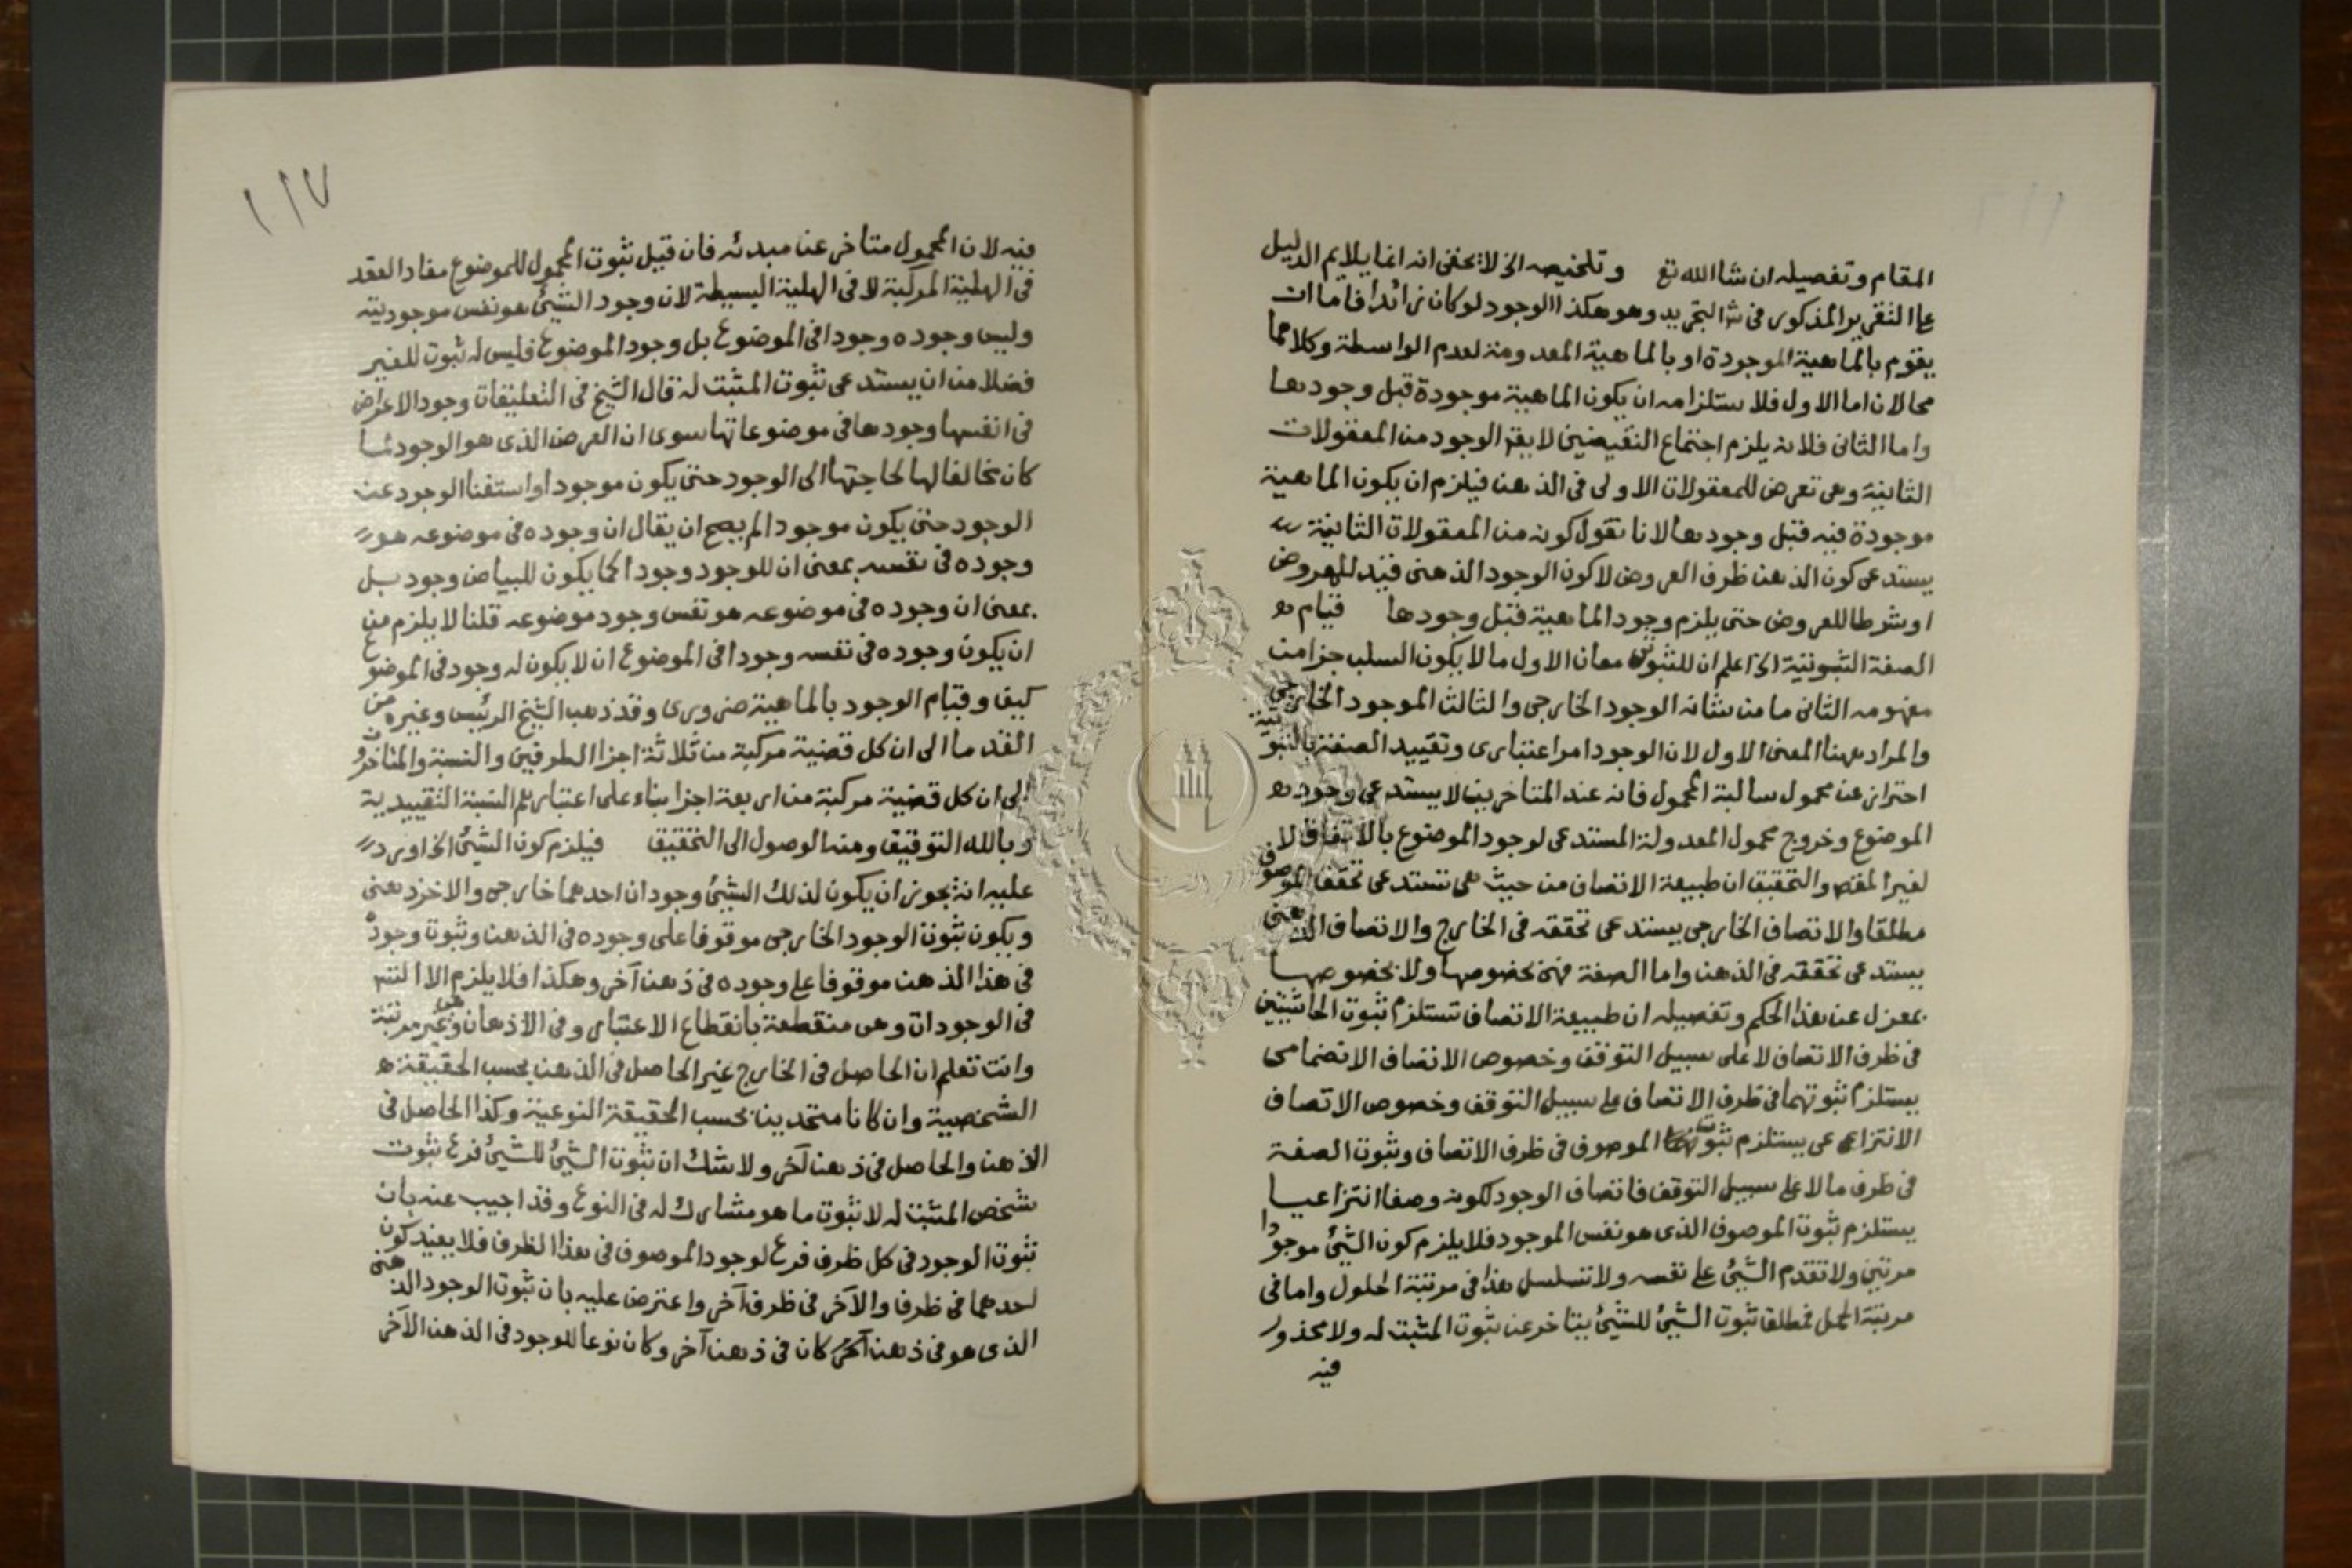 المقام وتفصيله ان شاالله تع وتلخيصه الخ لا يخفى انه انما يلايم الدليل
على التقرير المذكور فى شرح التجريد وهو هكذا الوجود لو كان زائدا فاما ان
يقوم بالماهية الموجودة او بالماهية المعدومة لعدم الواسطة وكلاهما
محالان اما الاول فلاستلزامه ان يكون الماهية موجودة قبل وجودها
واما الثانى فلانه يلزم اجتماع النقيضين لا يقال الوجود من المعقولات
الثانية وهى تعرض للمعقولات الاولى فى الذهن فيلزم ان يكون الماهية
موجودة فيه قبل وجودها لانا نقول كونه من المعقولات الثانية
يستدعى كون الذهن ظرف العروض لا كون الوجود الذهنى قيد للمعروض
او شرطا للعروض حتى يلزم وجود الماهية قبل وجودها قيام
الصفة الثبوتية الخ اعلم ان للثبوتى معان الاول ما لا يكون السلب جزا من
مفهومه الثانى ما من شانه الوجود الخارجى والثالث الموجود الخارجى
والمراد ههنا المعنى الاول لان الوجود امر اعتبارى وتقييد الصفة بالثبوتية
احتراز عن محمول سالبة المحمول فانه عند المتاخرين لا يستدعى وجود
الموضوع وخروج محمول المعدولة المستدعى لوجود الموضوع بالاتفاق لا
لغير المقصد والتحقيق ان طبيعة الاتصاف من حيث هى تستدعى تحقق الموصوف
مطلقا والاتصاف الخارجى يستدعى تحققه فى الخارج والاتصاف الذهنى
يستدعى تحققه فى الذهن واما الصفة فهى بخصوصها ولا بخصوصها
بمعزل عن هذا الحكم وتفصيله ان طبيعة الاتصاف تستلزم ثبوت الحاشيتين
فى ظرف الاتصاف لا على سبيل التوقف وخصوص الاتصاف الانضمامى
يستلزم ثبوتهما فى ظرف الاتصاف على سبيل التوقف وخصوص الاتصاف
الانتزاعى يستلزم ثبوت الموصوف فى ظرف الاتصاف وثبوت الصفة
فى ظرف ما لا على سبيل التوقف فاتصاف الوجود لكونه وصفا انتزاعيا
يستلزم ثبوت الموصوف الذى هو نفس الموجود فلا يلزم كون الشئ موجودا
مرتين ولا تقدم الشئ على نفسه ولا تسلسل هذا فى مرتبة الحلول واما فى
مرتبة الحمل فمطلق ثبوت الشئ للشئ يتاخر عن ثبوت المثبت له ولا محذور
فيه
١١٧
فيه لان المحمول متاخر عن مبدئه فان قيل ثبوت المحمول للموضوع مفاد العقد
فى الهلية المركبة لا فى الهلية البسيطة لان وجود الشئ هو نفس موجوديته
وليس وجوده وجودا فى الموضوع بل وجود الموضوع فليس له ثبوت للغير
فضلا من ان يستدعى ثبوت المثبت له قال الشيخ فى التعليقات وجود الاعراض
فى انفسها وجودها فى موضوعاتها سوى ان العرض الذى هو الوجود لما
كان مخالفا لها لحاجتها الى الوجود حتى يكون موجودا واستغنا الوجود عن
الوجود حتى يكون موجودا لم يصح ان يقال ان وجوده فى موضوعه هو
وجوده فى نفسه بمعنى ان للوجود وجودا كما يكون للبياض وجود بل
بمعنى ان وجوده فى موضوعه هو نفس وجود موضوعه قلنا لا يلزم من
ان يكون وجوده فى نفسه وجودا فى الموضوع ان لا يكون له وجود فى الموضوع
كيف وقيام الوجود بالماهية ضرورى وقد ذهب الشيخ الرئيس وغيره من
القدما الى ان كل قضية مركبة من ثلاثة اجزا الطرفين والنسبة والمتاخرون
الى ان كل قضية مركبة من اربعة اجزا بناء على اعتبارهم النسبة التقييدية
وبالله التوفيق ومنه الوصول الى التحقيق فيلزم كون الشئ الخ اورد
عليه انه يجوز ان يكون لذلك الشئ وجودان احدهما خارجى والاخر ذهنى
ويكون ثبوت الوجود الخارجى موقوفا على وجوده فى الذهن وثبوت وجوده
فى هذا الذهن موقوفا على وجوده فى ذهن آخر وهكذا فلا يلزم الا التسـ
فى الوجودات وهى منقطعة بانقطاع الاعتبار وفى الاذهان وهى غير مرتبة
وانت تعلم ان الحاصل فى الخارج غير الحاصل فى الذهن بحسب الحقيقة
الشخصية وان كانا متحدين بحسب الحقيقة النوعية وكذا الحاصل فى
الذهن والحاصل فى ذهن آخر ولا شك ان ثبوت الشئ للشئ فرع ثبوت
شخص المثبت له لا ثبوت ما هو مشارك له فى النوع وقد اجيب عنه بان
ثبوت الوجود فى كل ظرف فرع لوجود الموصوف فى هذا الظرف فلا يفيد كون
احدهما فى ظرف والآخر فى ظرف آخر واعترض عليه بان ثبوت الوجود الذهنى
الذى هو فى ذهن آخر كان فى ذهن آخر وكان نوعا للوجود فى الذهن الآخر